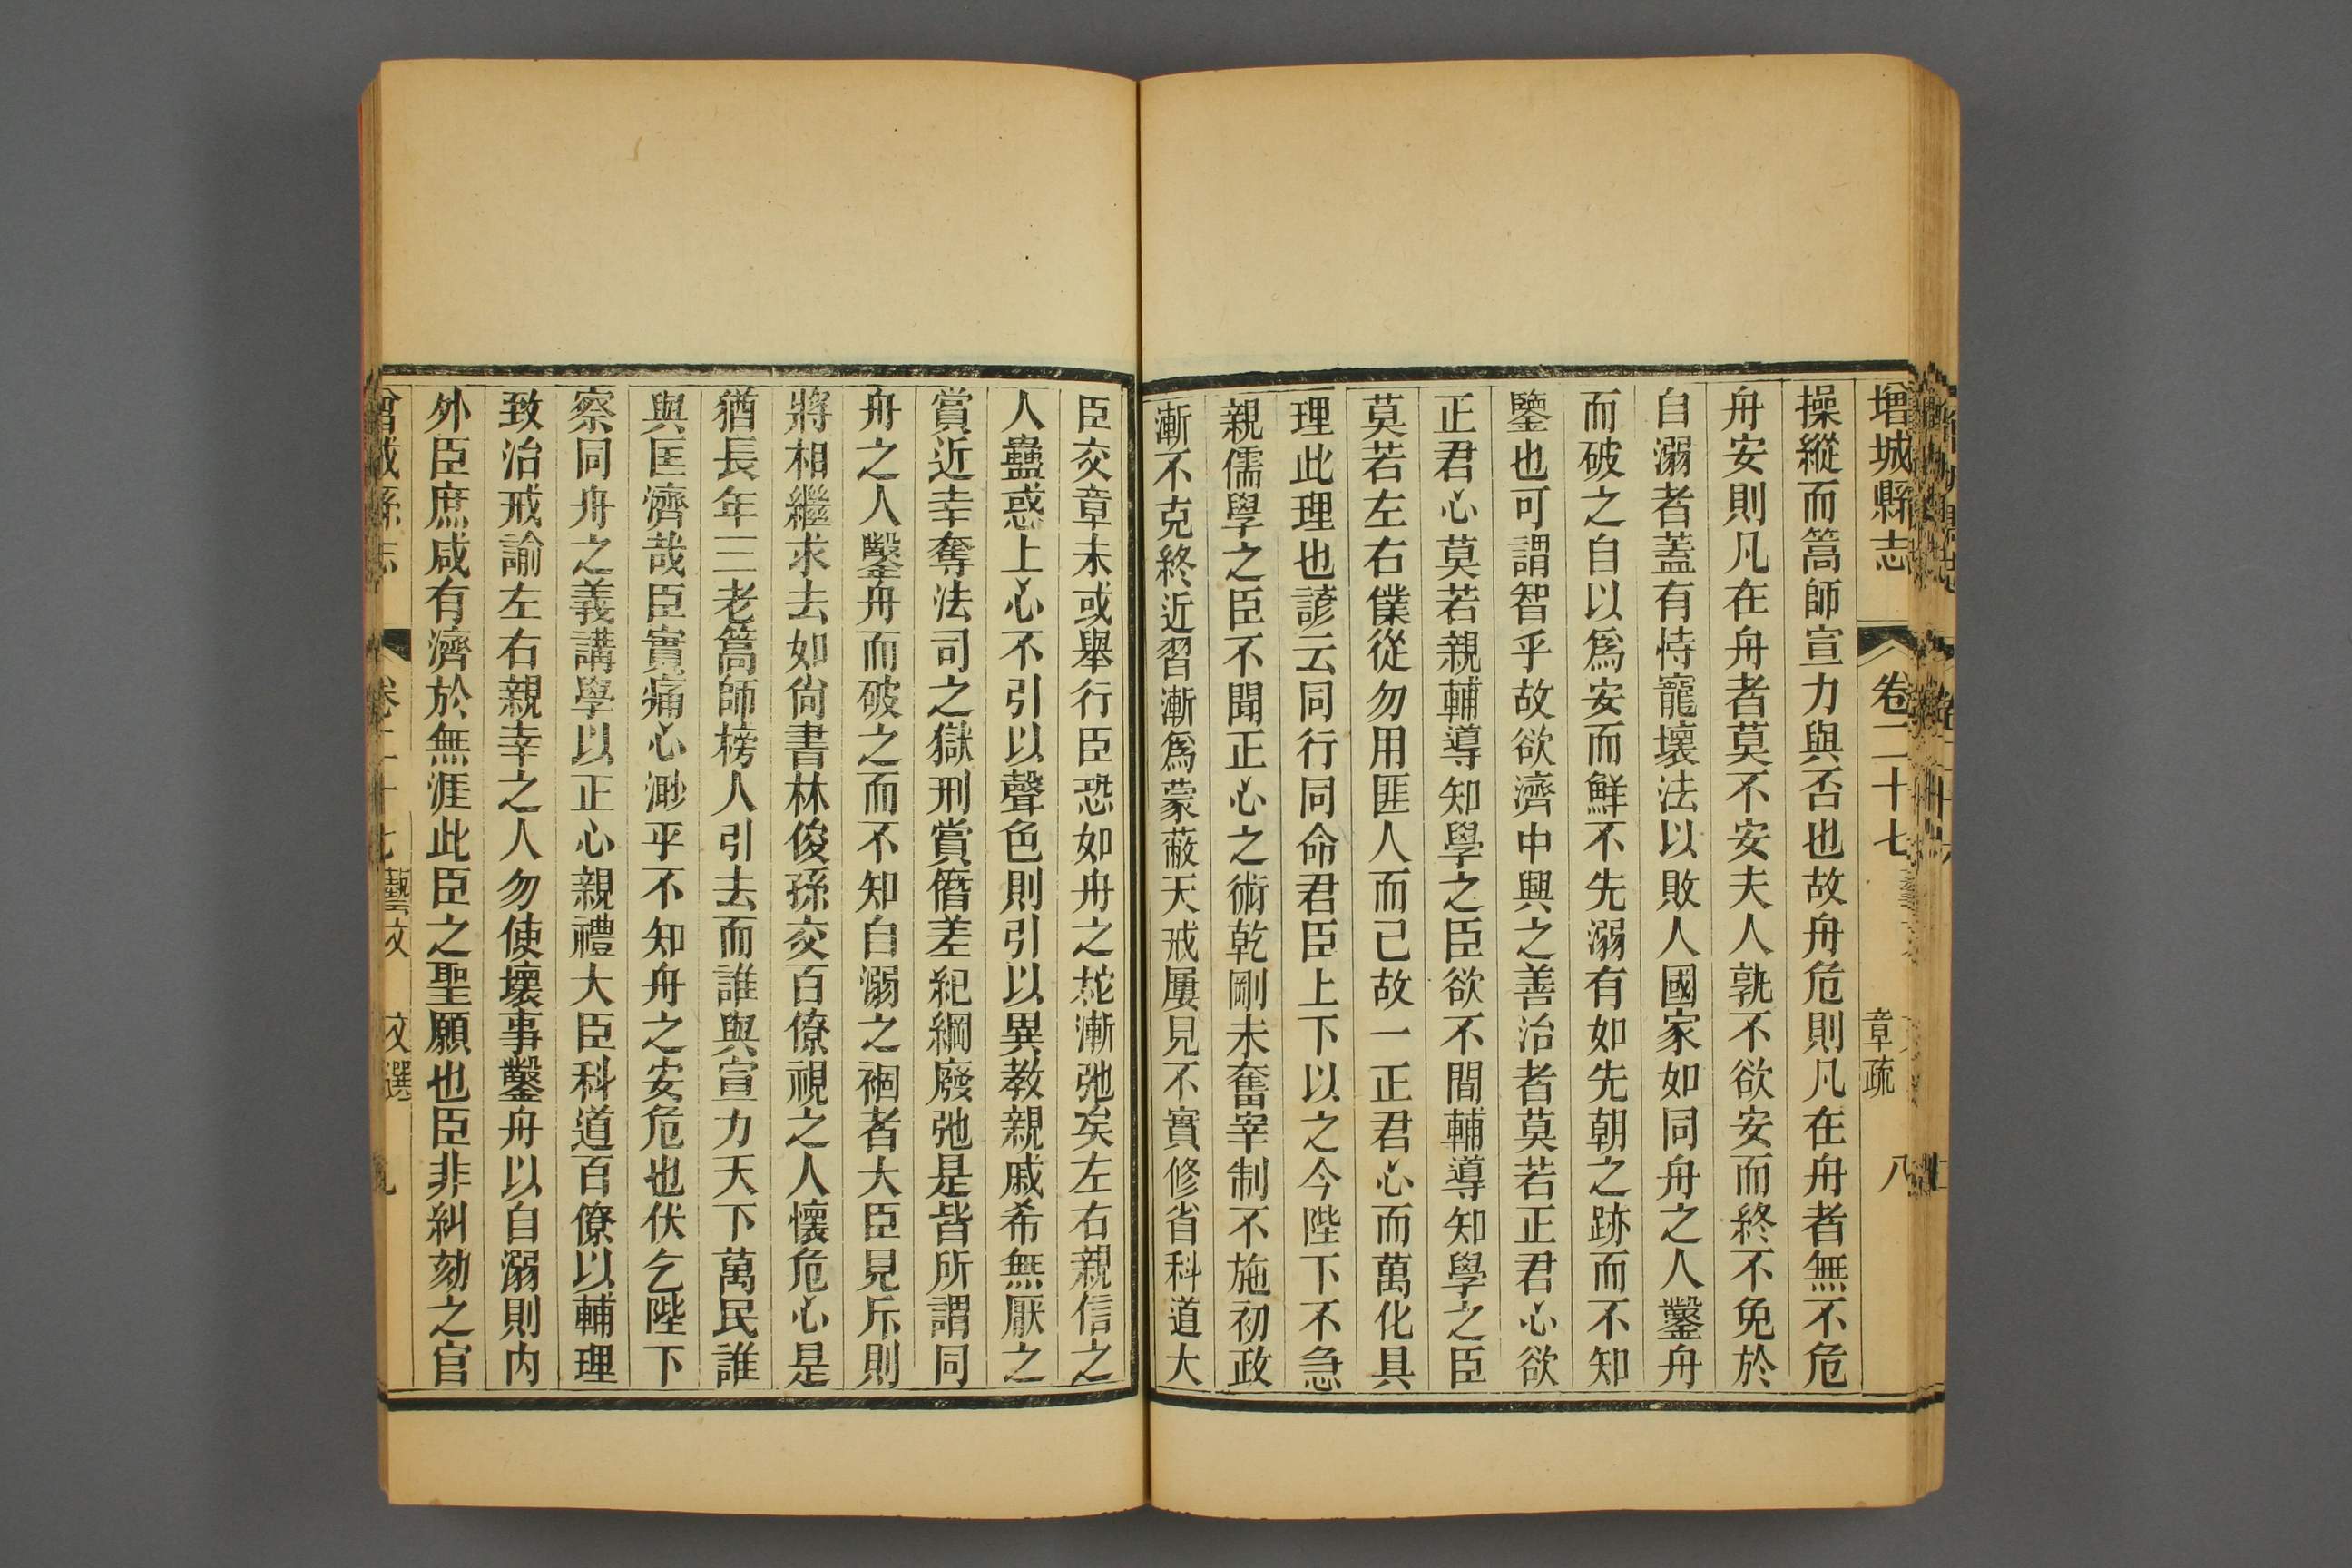 增城縣志 卷二十七 章疏 八
操縱而篙師宣力與否也故舟危則凡在舟者無不危
舟安則凡在舟者莫不安夫人孰不欲安而終不免於
自溺者蓋有恃寵壞法以敗人國家如同舟之人鑿舟
而破之自以爲安而鮮不先溺有如先朝之跡而不知
鑒也可謂智乎故欲濟中興之善治者莫若正君心欲
正君心莫若親輔導知學之臣欲不間輔導知學之臣
莫若左右僕從勿用匪人而已故一正君心而萬化具
理此理也諺云同行同命君臣上下以之今陛下不急
親儒學之臣不聞正心之術乾剛未奮宰制不施初政
漸不克終近習漸爲蒙蔽天戒屢見不實修省科道大
臣交章未或舉行臣恐如舟之柁漸弛矣左右親信之
人蠱惑上心不引以聲色則引以異教親戚希無厭之
賞近幸奪法司之獄刑賞僭差紀綱廢弛是皆所謂同
舟之人鑿舟而破之而不知自溺之禍者大臣見斥則
將相繼求去如尙書林俊孫交百僚視之人懷危心是
猶長年三老篙師榜人引去而誰與宣力天下萬民誰
與匡濟哉臣實痛心渺乎不知舟之安危也伏乞陛下
察同舟之義講學以正心親禮大臣科道百僚以輔理
致治戒諭左右親幸之人勿使壞事鑿舟以自溺則内
外臣庶咸有濟於無涯此臣之聖願也臣非糾劾之官
增城縣志 卷二十七 藝文 文選 九